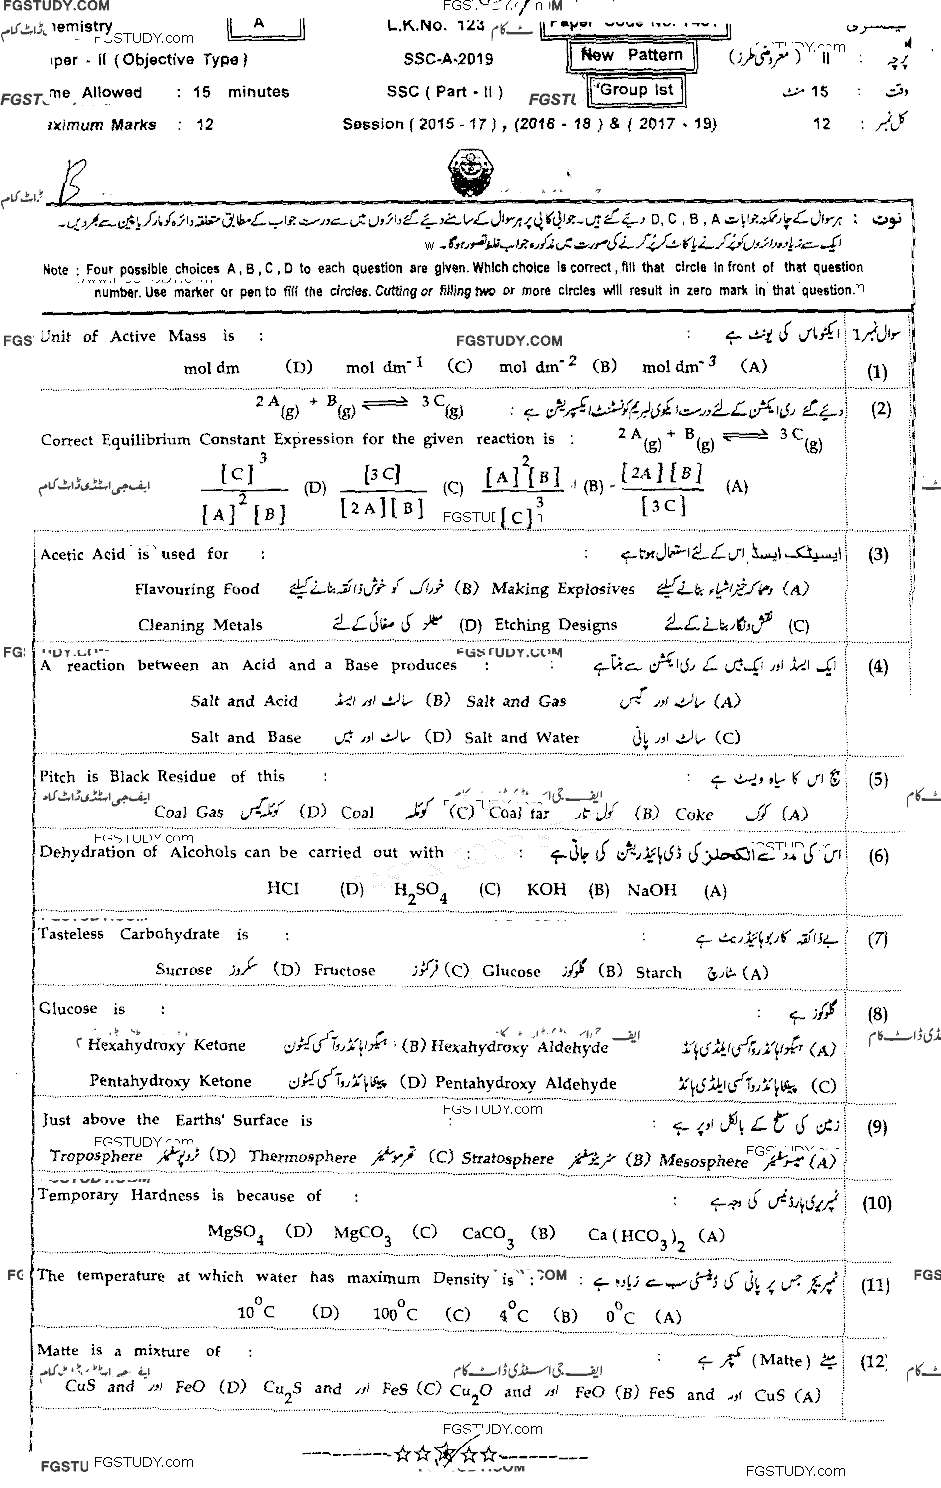 FGSTUDY.COM
hemistry A L.K.No. 123 Paper Code No.
per - II (Objective Type) SSC-A-2019 New Pattern پرچہ : II (معروضی طرز)
me Allowed : 15 minutes SSC (Part - II) "Group Ist وقت : 15 منٹ
ximum Marks : 12 Session (2015 - 17), (2016 - 18) & (2017 - 19) کل نمبر : 12
B
نوٹ : ہر سوال کے چار ممکنہ جوابات D, C, B, A دیئے گئے ہیں۔ جوابی کاپی پر ہر سوال کے سامنے دیئے گئے دائروں میں سے درست جواب کے مطابق متعلقہ دائرہ کو مارکر یا پین سے بھر دیں۔
ایک سے زیادہ دائروں کو پُر کرنے یا کاٹ کر پُر کرنے کی صورت میں مذکورہ جواب غلط تصور ہوگا۔
Note : Four possible choices A, B, C, D to each question are given. Which choice is correct, fill that circle in front of that question
number. Use marker or pen to fill the circles. Cutting or filling two or more circles will result in zero mark in that question.
Unit of Active Mass is : ایکٹو ماس کی یونٹ ہے : سوال نمبر 1
mol dm (D) mol dm⁻¹ (C) mol dm⁻² (B) mol dm⁻³ (A) (1)
2A(g) + B(g) ⇌ 3C(g) دیئے گئے ری ایکشن کے لئے درست ایکوی لبریم کونسٹنٹ ایکسپریشن ہے : (2)
Correct Equilibrium Constant Expression for the given reaction is : 2A(g) + B(g) ⇌ 3C(g)
[C]³ / [A]² [B] (D) [3C] / [2A][B] (C) [A]²[B] / [C]³ (B) [2A][B] / [3C] (A)
Acetic Acid is used for : ایسیٹک ایسڈ اس کے لئے استعمال ہوتا ہے : (3)
Flavouring Food خوراک کو خوش ذائقہ بنانے کیلئے (B) Making Explosives دھماکہ خیز اشیاء بنانے کیلئے (A)
Cleaning Metals میٹلز کی صفائی کے لئے (D) Etching Designs نقش و نگار بنانے کے لئے (C)
A reaction between an Acid and a Base produces : ایک ایسڈ اور ایک بیس کے ری ایکشن سے بنتا ہے : (4)
Salt and Acid سالٹ اور ایسڈ (B) Salt and Gas سالٹ اور گیس (A)
Salt and Base سالٹ اور بیس (D) Salt and Water سالٹ اور پانی (C)
Pitch is Black Residue of this : پچ اس کا سیاہ ویسٹ ہے : (5)
Coal Gas کوئلہ گیس (D) Coal کوئلہ (C) Coal tar کول تار (B) Coke کوک (A)
Dehydration of Alcohols can be carried out with : اس کی مدد سے الکحلز کی ڈی ہائیڈریشن کی جاتی ہے : (6)
HCl (D) H₂SO₄ (C) KOH (B) NaOH (A)
Tasteless Carbohydrate is : بے ذائقہ کاربوہائیڈریٹ ہے : (7)
Sucrose سکروز (D) Fructose فرکٹوز (C) Glucose گلوکوز (B) Starch سٹارچ (A)
Glucose is : گلوکوز ہے : (8)
Hexahydroxy Ketone ہیگزا ہائڈروآکسی کیٹون (B) Hexahydroxy Aldehyde ہیگزا ہائڈروآکسی ایلڈی ہائڈ (A)
Pentahydroxy Ketone پینٹا ہائڈروآکسی کیٹون (D) Pentahydroxy Aldehyde پینٹا ہائڈروآکسی ایلڈی ہائڈ (C)
Just above the Earths' Surface is : زمین کی سطح کے بالکل اوپر ہے : (9)
Troposphere ٹروپوسفیئر (D) Thermosphere تھرموسفیئر (C) Stratosphere سٹریٹوسفیئر (B) Mesosphere میسوسفیئر (A)
Temporary Hardness is because of : ٹمپریری ہارڈنیس کی وجہ ہے : (10)
MgSO₄ (D) MgCO₃ (C) CaCO₃ (B) Ca(HCO₃)₂ (A)
The temperature at which water has maximum Density is : ٹمپریچر جس پر پانی کی ڈینسٹی سب سے زیادہ ہے : (11)
10°C (D) 100°C (C) 4°C (B) 0°C (A)
Matte is a mixture of : میٹے (Matte) مکسچر ہے : (12)
CuS and اور FeO (D) Cu₂S and اور FeS (C) Cu₂O and اور FeO (B) FeS and اور CuS (A)
FGSTUDY.COM
FGSTU FGSTUDY.com FGSTUDY.com